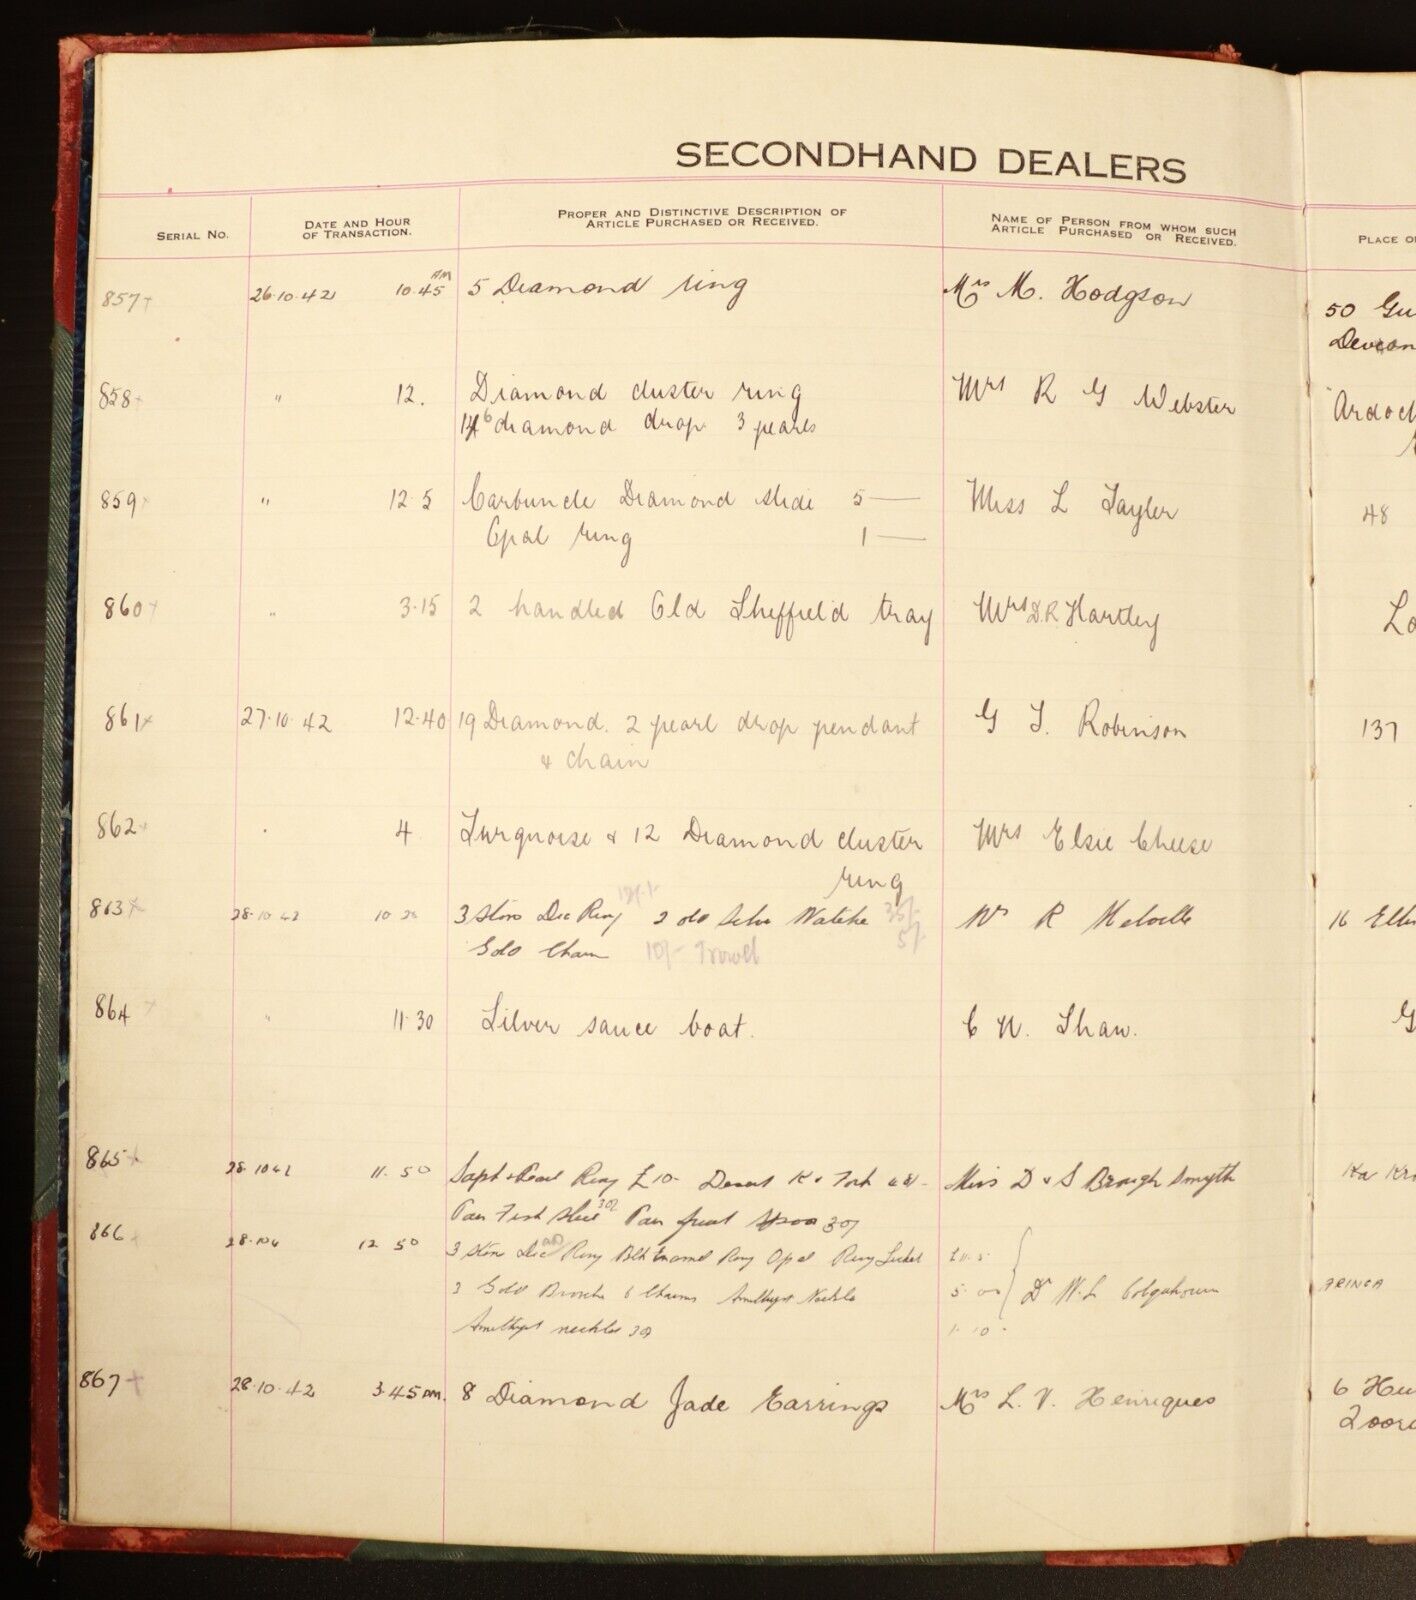 SECONDHAND DEALERS
SERIAL NO.
DATE AND HOUR
OF TRANSACTION.
PROPER AND DISTINCTIVE DESCRIPTION OF
ARTICLE PURCHASED OR RECEIVED.
NAME OF PERSON FROM WHOM SUCH
ARTICLE PURCHASED OR RECEIVED.
PLACE O
857+ 26.10.42 10.45 AM 5 Diamond ring Mrs M. Hodgson 50 Gu
Devon
858+ " 12. Diamond cluster ring Mrs R G Webster Ardoch
diamond drop 3 pearls
859+ " 12.5 Carbuncle Diamond slide 5 — Miss L Tayler 48
Opal ring 1 —
860+ " 3.15 2 handled Old Sheffield tray Mrs D.R Hartley Lo
861+ 27.10.42 12.40 19 Diamond. 2 pearl drop pendant G T. Robinson 137
& chain
862+ 4 Turquoise & 12 Diamond cluster Mrs Elsie Cheese
ring
863+ 28.10.42 3 Stone Dia Ring 2 old Silv Watche 35/- R Melville 16 Elli
5/-
Gold Chain 10/-
864+ " 11.30 Silver sauce boat. C N. Shaw. G
865+ 28.10.42 11.50 Saph & Pearl Ring £10- Desert K & Fork Miss D & S Brough Smyth
Pair Fish Pair fruit 30/
866+ 28.10.4 12 50 3 Stone Dia Ring Blk Enamel Ring Opal Ring Locket
3 Gold Brooche 6 Charms Amethyst Neckle 5 Dr W.L Colquhoun
Amethyst necklet 30/ 1.10.
867+ 28.10.42 3.45 PM. 8 Diamond Jade Earrings Mrs L. V. Henriques 6 Hu
Toora